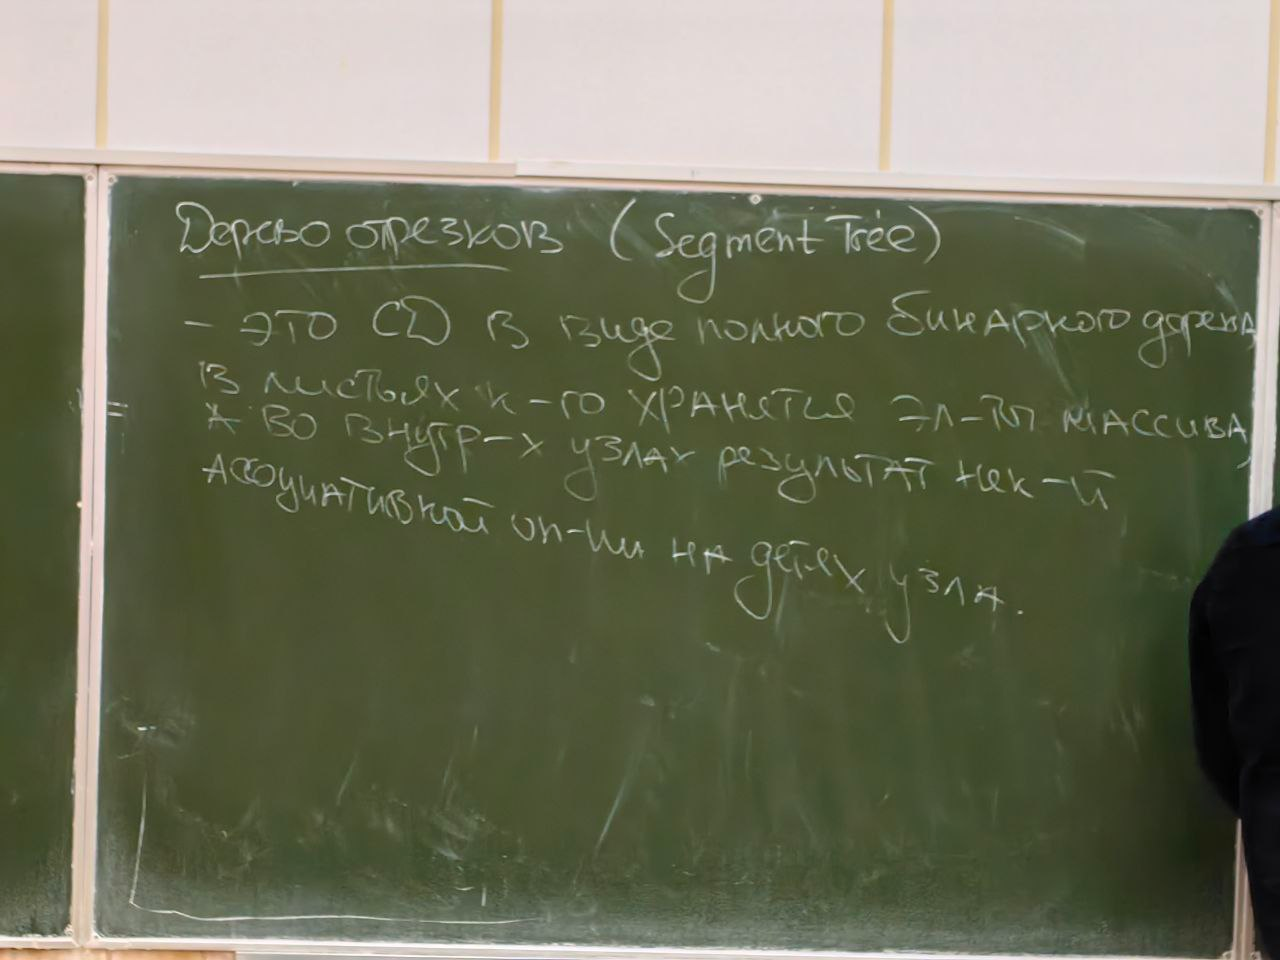 Дерево отрезков (Segment Tree)
- это СД в виде полного бинарного дерева,
в листьях к-го хранятся эл-ты массива,
а во внутр-х узлах результат нек-й
ассоциативной оп-ии на детях узла.